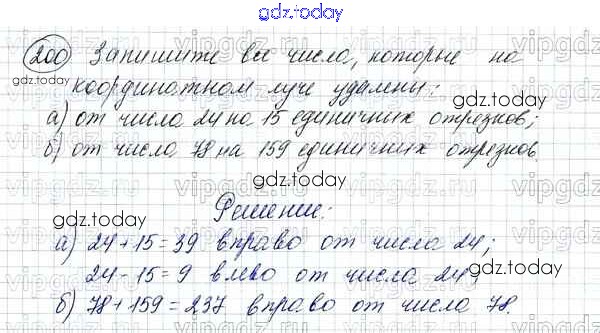 gdz.today
200 Запишите все числа, которые на
gdz.today
координатном луче удалены:
gdz.today
а) от числа 24 на 15 единичных отрезков;
б) от числа 78 на 159 единичных отрезков.
gdz.today
Решение:
gdz.today
а) 24 + 15 = 39 вправо от числа 24;
24 - 15 = 9 влево от числа 24;
gdz.today
б) 78 + 159 = 237 вправо от числа 78.
gdz.today